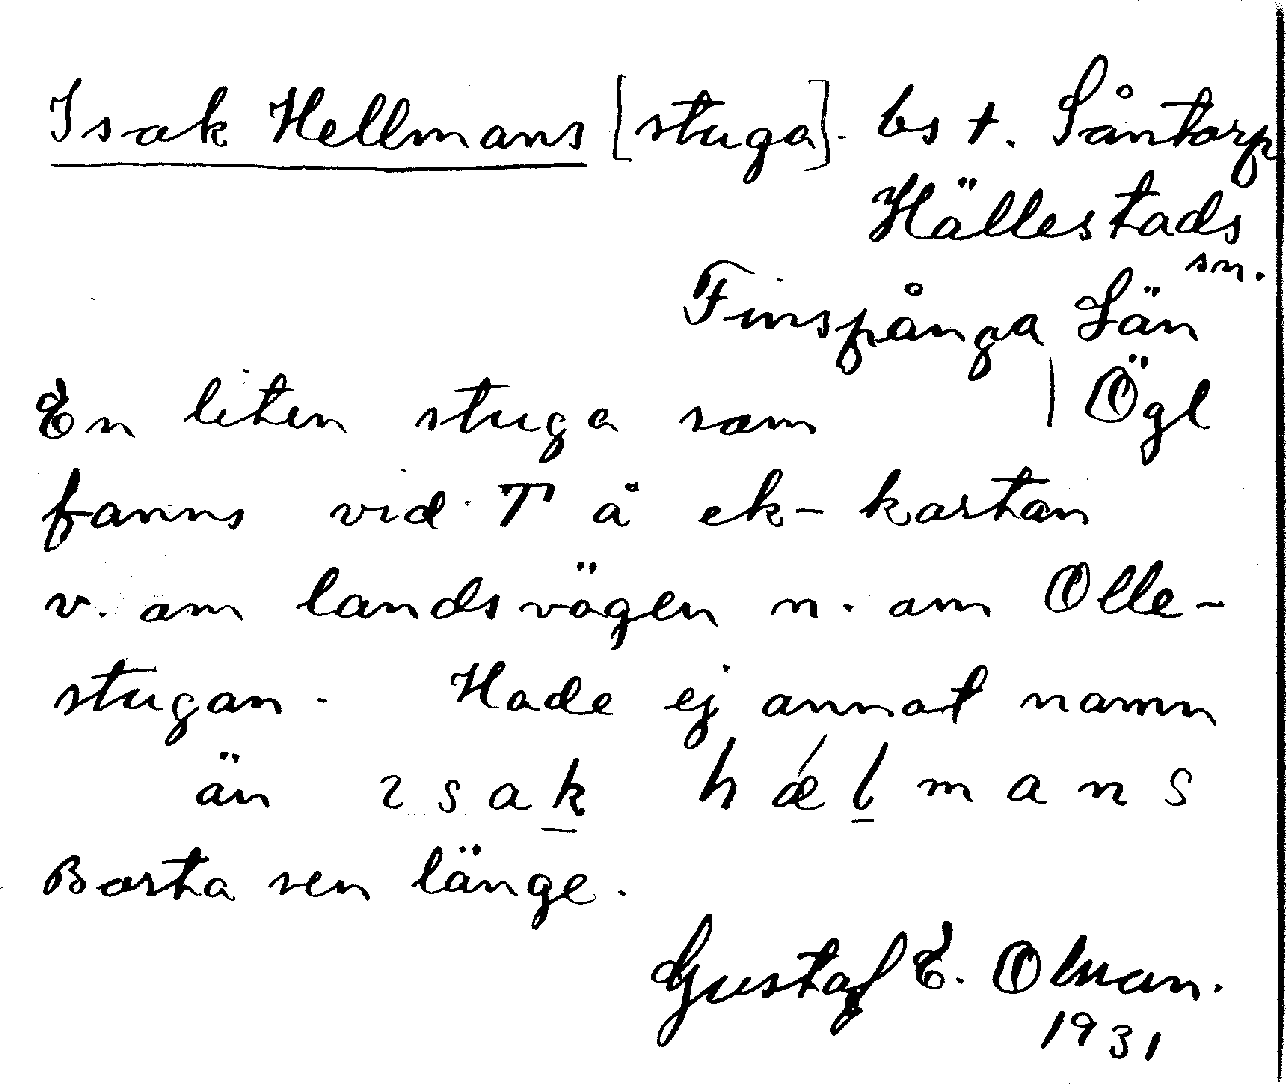 Isak Hellmans [stuga]. bs t. Såntorp
Hällestads
sn.
Finspånga Län
Ögl
En liten stuga som
fanns vid T å ek-kartan
v. om landsvägen n. om Olle-
stugan. Hade ej annat namn
än isak hǽlmans
Borta sen länge.
Gustaf E. Olman.
1931